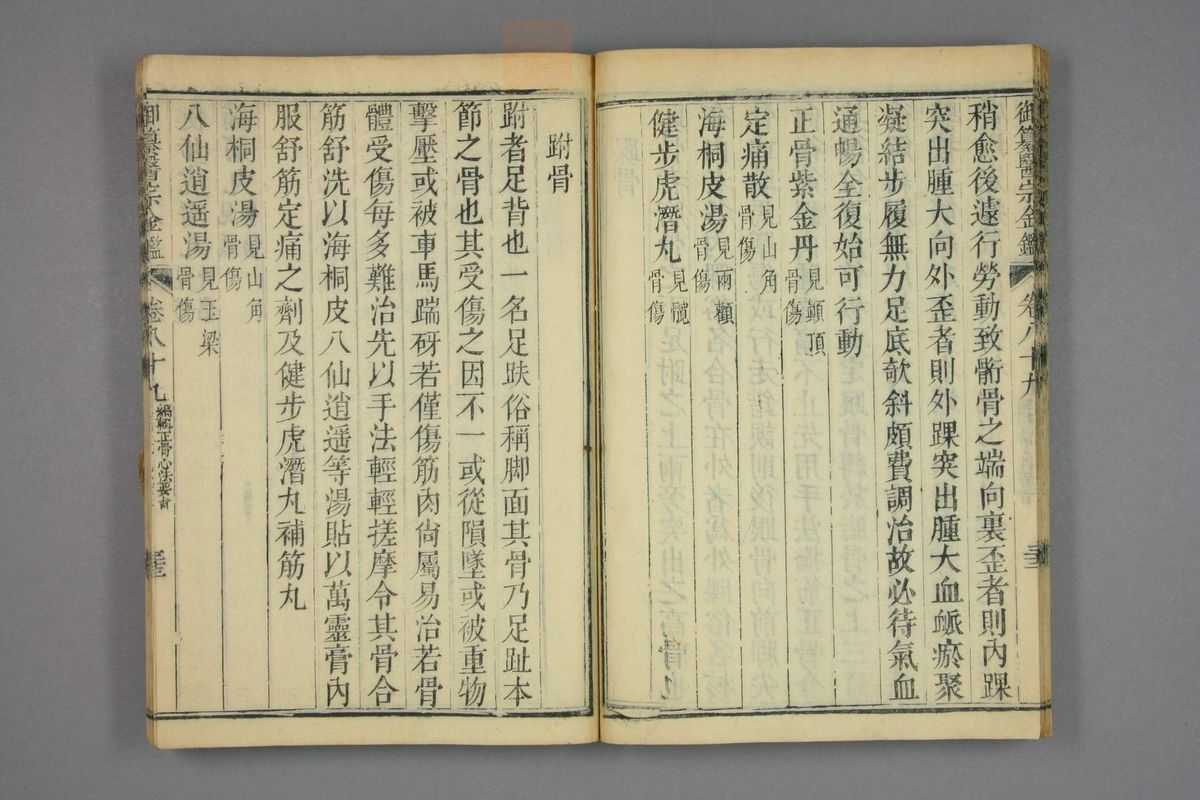 御纂醫宗金鑑 卷八十九
稍愈後遽行勞動致骱骨之端向裏歪者則內踝
突出腫大向外歪者則外踝突出腫大血脈瘀聚
凝結步履無力足底欹斜頗費調治故必待氣血
通暢全復始可行動
正骨紫金丹見顚頂骨傷
定痛散見山角骨傷
海桐皮湯見兩顴骨傷
健步虎潛丸見髖骨傷
跗骨
跗者足背也一名足趺俗稱脚面其骨乃足趾本
節之骨也其受傷之因不一或從隕墜或被重物
擊壓或被車馬踹砑若僅傷筋肉尙屬易治若骨
體受傷每多難治先以手法輕輕搓摩令其骨合
筋舒洗以海桐皮八仙逍遥等湯貼以萬靈膏內
服舒筋定痛之劑及健步虎潛丸補筋丸
海桐皮湯見山角骨傷
八仙逍遥湯見玉梁骨傷
御纂醫宗金鑑 卷八十九 編輯正骨心法要旨